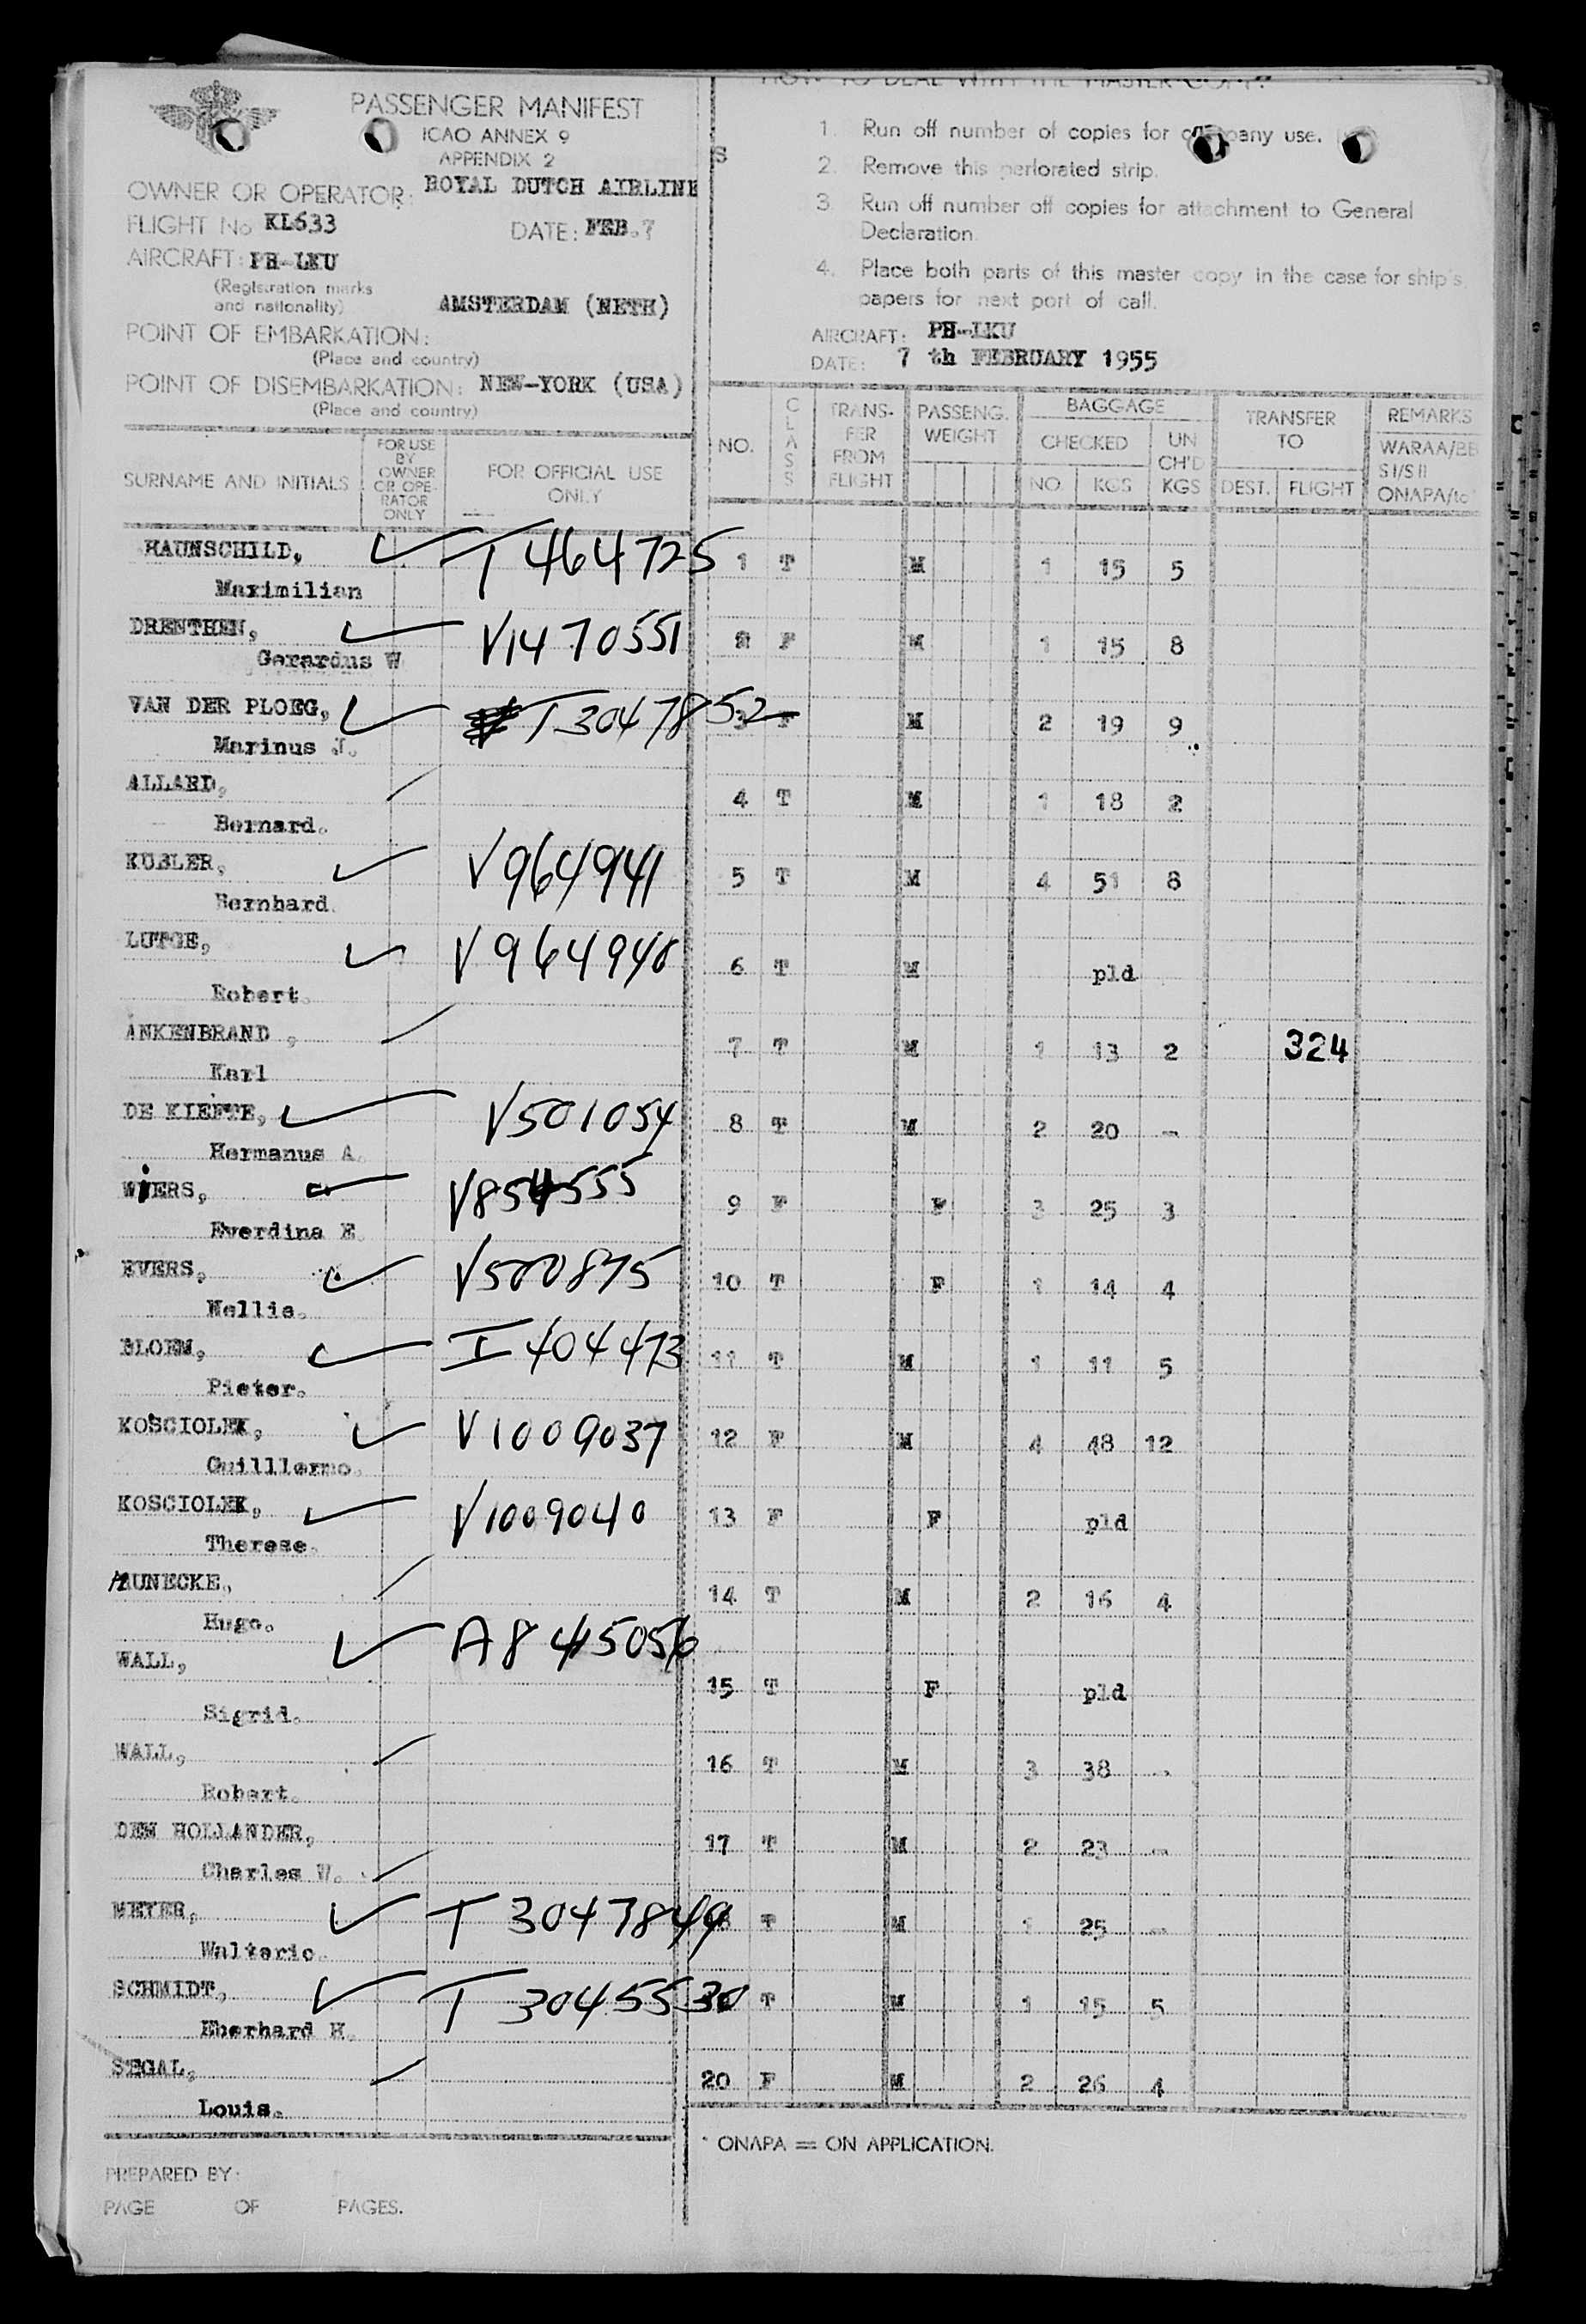 PASSENGER MANIFEST
ICAO ANNEX 9
APPENDIX 2
OWNER OR OPERATOR: ROYAL DUTCH AIRLINE
S
FLIGHT No KL633 DATE: FEB.7
AIRCRAFT: PH-LKU
(Registration marks
and nationality)
AMSTERDAM (NETH)
POINT OF EMBARKATION:
(Place and country)
POINT OF DISEMBARKATION: NEW-YORK (USA)
(Place and country)
SURNAME AND INITIALS
FOR USE
BY
OWNER
OR OPE-
RATOR
ONLY
FOR OFFICIAL USE
ONLY
HOW TO DEAL WITH THE MASTER-COPY.
1. Run off number of copies for company use.
2. Remove this perforated strip.
3. Run off number off copies for attachment to General
Declaration.
4. Place both parts of this master copy in the case for ship's
papers for next port of call.
AIRCRAFT: PH-LKU
DATE: 7 th FEBRUARY 1955
NO.
CLASS
TRANS-
FER
FROM
FLIGHT
PASSENG.
WEIGHT
BAGGAGE
CHECKED
NO. KGS
UN
CH'D
KGS
TRANSFER
TO
DEST. FLIGHT
REMARKS
WARAA/BB
S I/S II
ONAPA/to
HAUNSCHILD, T 464725 1 T M 1 15 5
Maximilian
DRENTHEN, V1470551 2 F M 1 15 8
Gerardus W
VAN DER PLOEG, T3047852 3 F M 2 19 9
Marinus J.
ALLARD, 4 T M 1 18 2
Bernard.
KUBLER, V964941 5 T M 4 51 8
Bernhard.
LUTGE, V964940 6 T M pld
Robert.
ANKENBRAND , 7 T M 1 13 2 324
Karl
DE KIEFTE, V501054 8 T M 2 20 -
Hermanus A.
WIERS, V854555 9 F F 3 25 3
Everdina E.
EVERS, V500875 10 T F 1 14 4
Nellie.
BLOEM, I 404473 11 T M 1 11 5
Pieter.
KOSCIOLEK, V1009037 12 F M 4 48 12
Guilllermo.
KOSCIOLEK, V1009040 13 F F pld
Therese.
HAUNECKE, 14 T M 2 16 4
Hugo.
WALL, A8 415056 15 T F pld
Sigrid.
WALL, 16 T M 3 38 -
Robert.
DEN HOLLANDER, 17 T M 2 23 -
Charles W.
MEYER, T 3047849 18 T M 1 25 -
Walteric.
SCHMIDT, T 3045530 T M 1 15 5
Eberhard H.
SEGAL, 20 F M 2 26 4
Louis.
* ONAPA = ON APPLICATION.
PREPARED BY:
PAGE OF PAGES.